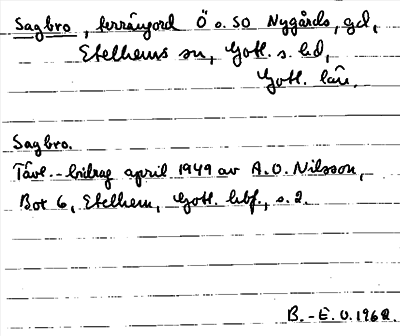 Sagbro, terrängord Ö o. SO Nygårds, gd,
Etelhems sn, Gotl. s. hd,
Gotl. län.
Sagbro.
Tävl.-bidrag april 1949 av A.O. Nilsson,
Box 6, Etelhem, Gotl. hbf., s. 2.
B.-E. O. 1962.